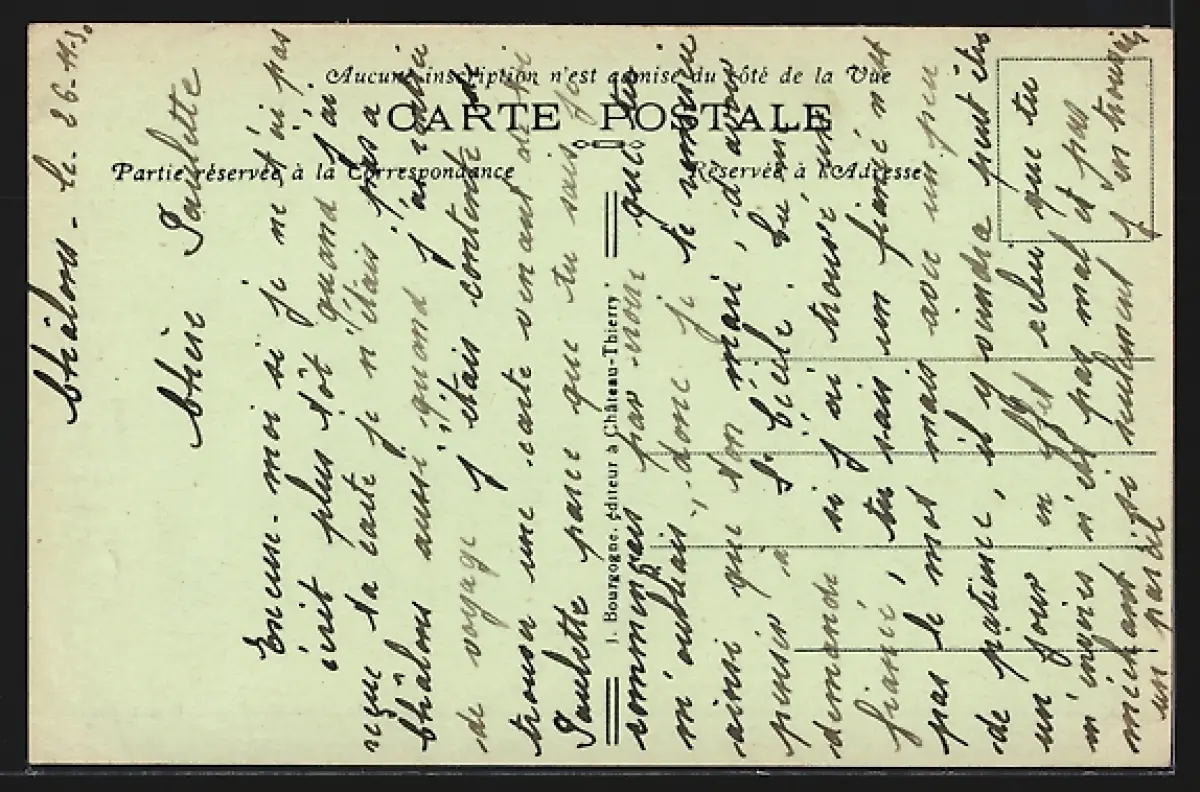 Aucune inscription n'est admise du côté de la Vue
CARTE POSTALE
Partie réservée à la Correspondance
Réservée à l'Adresse
J. Bourgogne, éditeur à Château-Thierry
Châlons - le 26-11-30
Chère Paulette
Excuse-moi si je ne t'ai pas
écrit plus tôt quand j'ai
reçue ta carte je n'étais pas a
Châlons aussi quand j'ai rentré
de voyage j'étais contente de
trouver une carte venant de toi
Paulette parce que tu sais je
commençais par croire que tu
m'oubliais, donc je te remercie
ainsi que ton mari, d'avoir
penser à Ste Cécile. Tu me
demande si j'ai trouvé un
fiancé, tu sais un fiancé n'est
pas le mot mais avec un peu
de patience, il y viendra peut être
un jour en effet celui que tu
m' est pas mal et pas
méchant si seulement j'en trouvais
un pareil